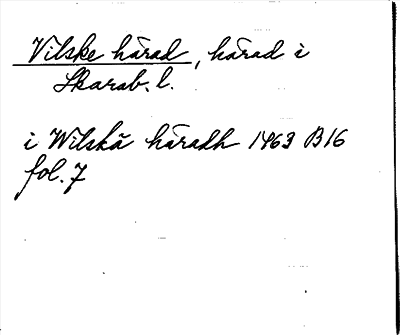 Vilske härad, härad i
Skarab. l.
i Wilskä häradh 1463 B16
fol. 7